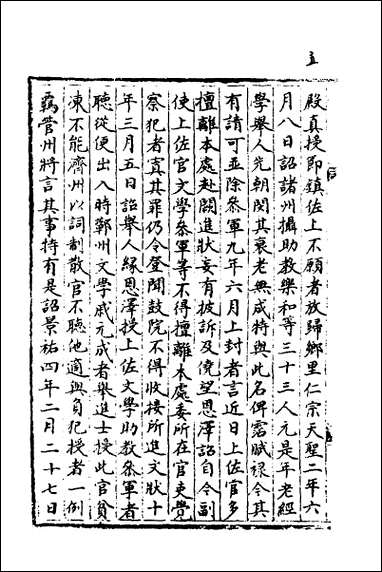 殿真授即鎮佐上不願者放歸鄉里仁宗天聖二年六
月八日詔諸州攝助教樂和等三十三人元是年老經
學舉人先朝閔其衰老無成特與此名俾霑祿令其
有請可並除參軍九年六月上封者言近日上佐官多
擅離本處赴闕進狀妄有披訴及僥望恩澤詔自今副
使上佐官文學參軍等不得擅離本處委所在官吏覺
察犯者寘其罪仍令登聞鼓院不得收接所進文狀十
年三月五日詔舉人緣恩澤授上佐文學助教參軍者
聽從便出入時鄭州文學戚元成者舉進士授此官貧
凍不能濟州以詞制散官不聽他適與負犯授者一例
羈管州將言其事特有是詔景祐四年二月二十七日